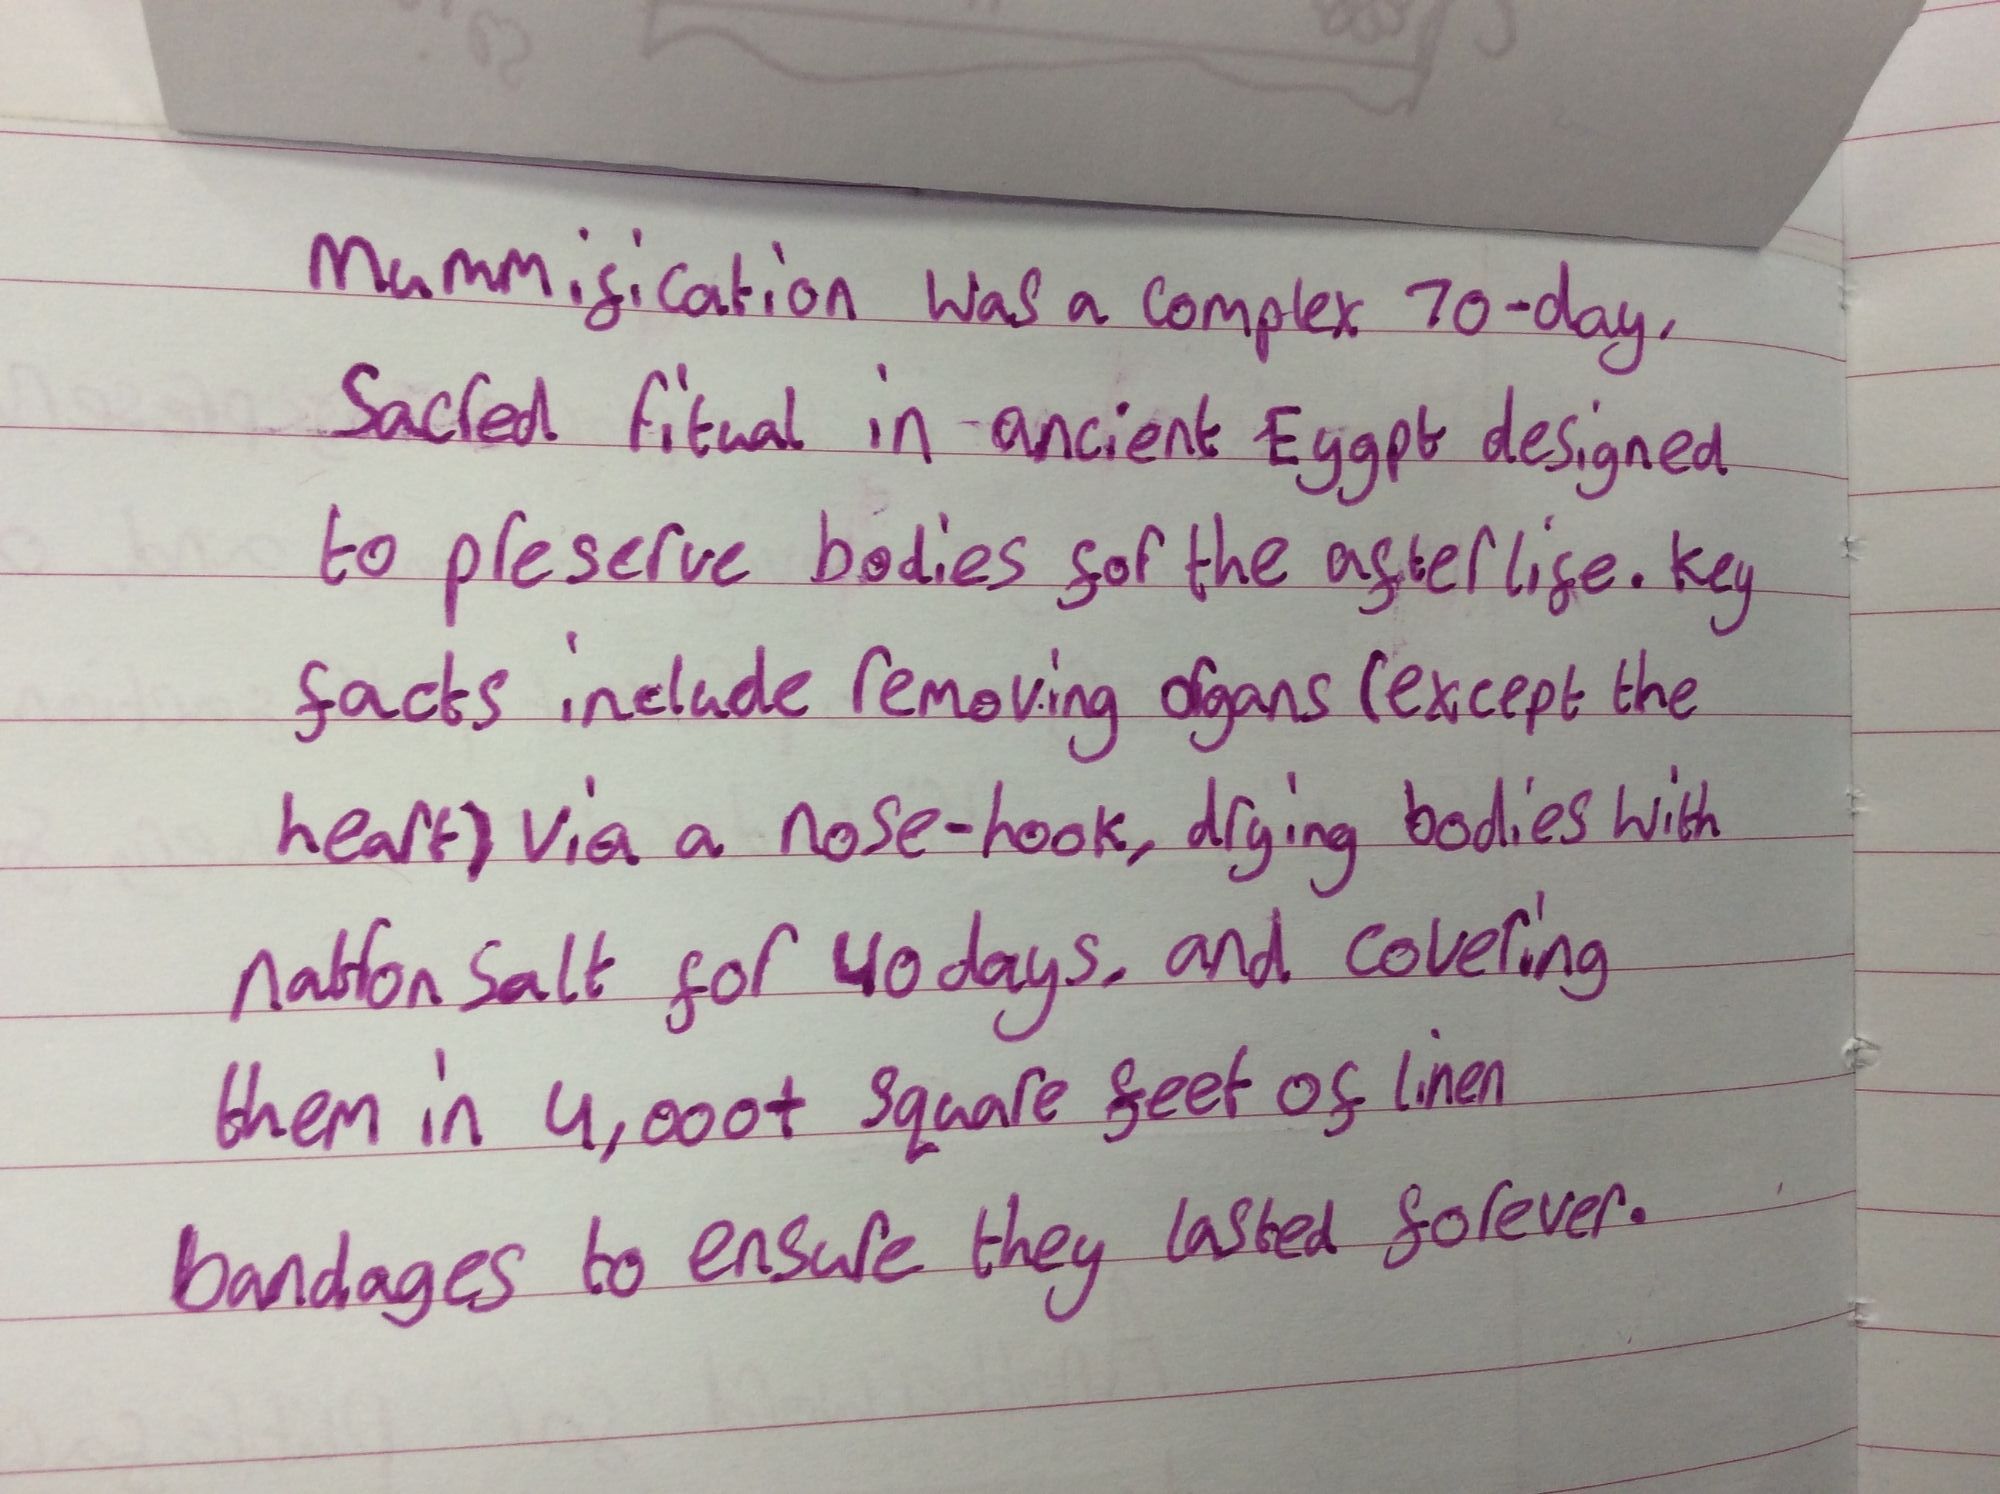 Mummification was a complex 70-day,
Sacred ritual in ancient Eygpt designed
to preserve bodies for the afterlife. Key
facts include removing organs (except the
heart) via a nose-hook, drying bodies with
natron salt for 40 days, and covering
them in 4,000+ square feet of linen
bandages to ensure they lasted forever.